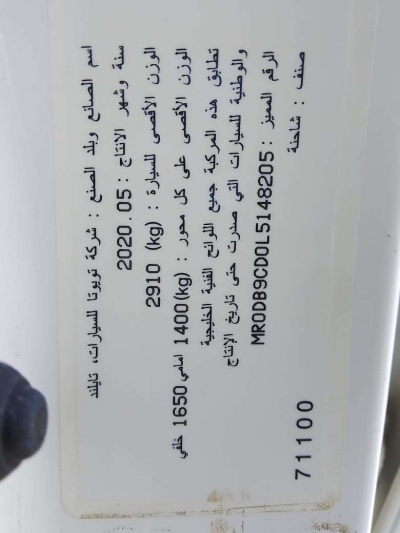 اسم الصانع وبلد الصنع : شركة تويوتا للسيارات، تايلند
سنة وشهر الانتاج : 2020.05
الوزن الأقصى للسيارة : 2910 (kg)
الوزن الأقصى على كل محور : 1400(kg) امامي 1650 خلفي
تطابق هذه المركبة جميع اللوائح الفنية الخليجية
والوطنية للسيارات التي صدرت حتى تاريخ الإنتاج
الرقم المميز : MR0DB9CD0L5148205
صنف : شاحنة
71100